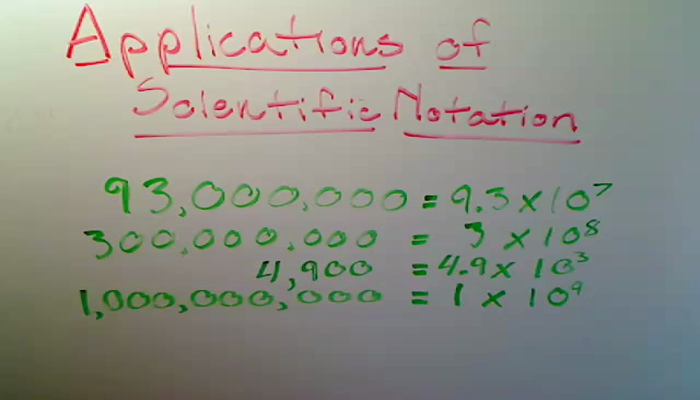 Applications of
Scientific Notation
93,000,000 = 9.3 x 10⁷
300,000,000 = 3 x 10⁸
4,900 = 4.9 x 10³
1,000,000,000 = 1 x 10⁹